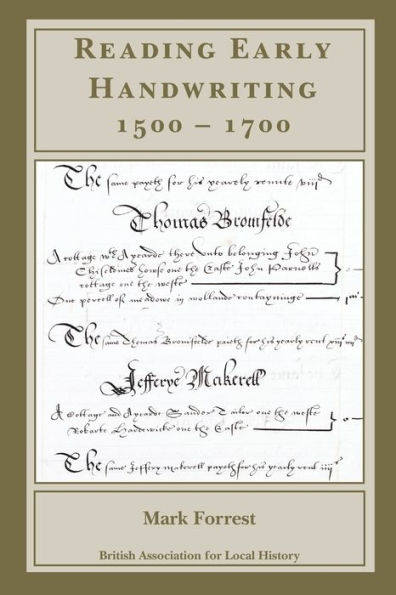 READING EARLY
HANDWRITING
1500 – 1700
The same payeth for his yearely rente viijd
Thomas Bromfelde
A cottage wth A yearde there unto belonging John
Chiseldines house one the Easte John Parnolls
cottage one the weste
One percell of meadowe in wollande contayninge
The same Thomas Bromfelde paieth for his yearly rent
Jefferye Makerell
A Cottage and A yearde Sandor Tailor one the weste
Robarte Hardewicke one the Easte
The same Jeffery makerell payeth for his yearly rent iiijd
Mark Forrest
British Association for Local History